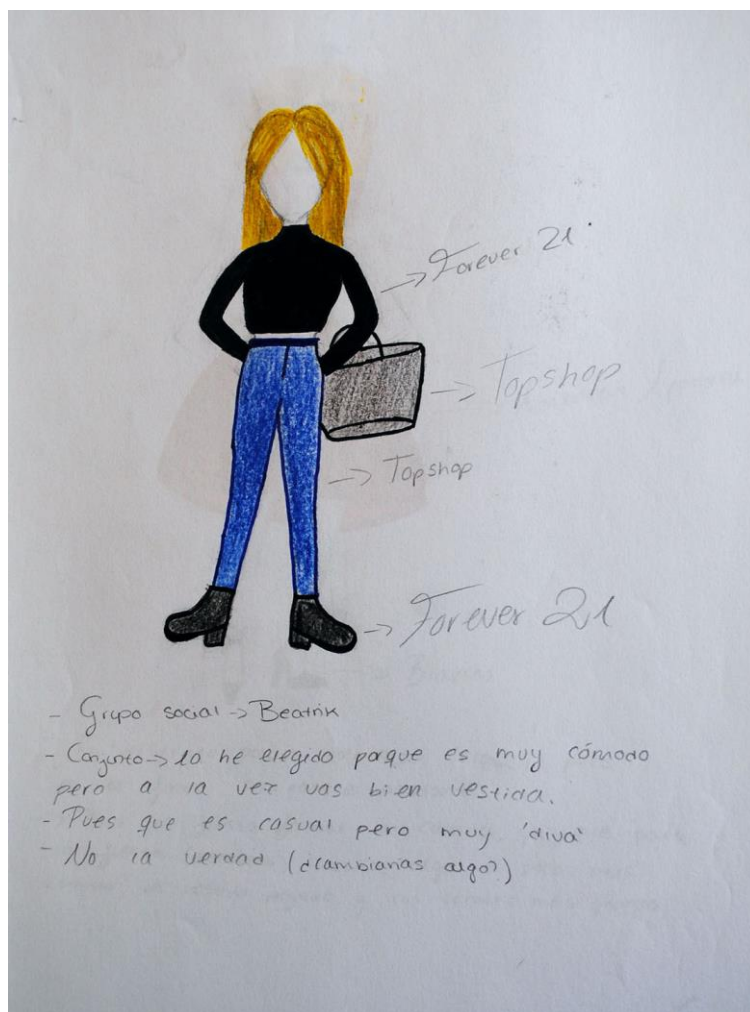 → Forever 21.
→ Topshop
→ Topshop
→ Forever 21
- Grupo social → Beatnik
- Conjunto → lo he elegido porque es muy cómodo
pero a la vez vas bien vestida.
- Pues que es casual pero muy 'diva'
- No la verdad (¿cambiarías algo?)